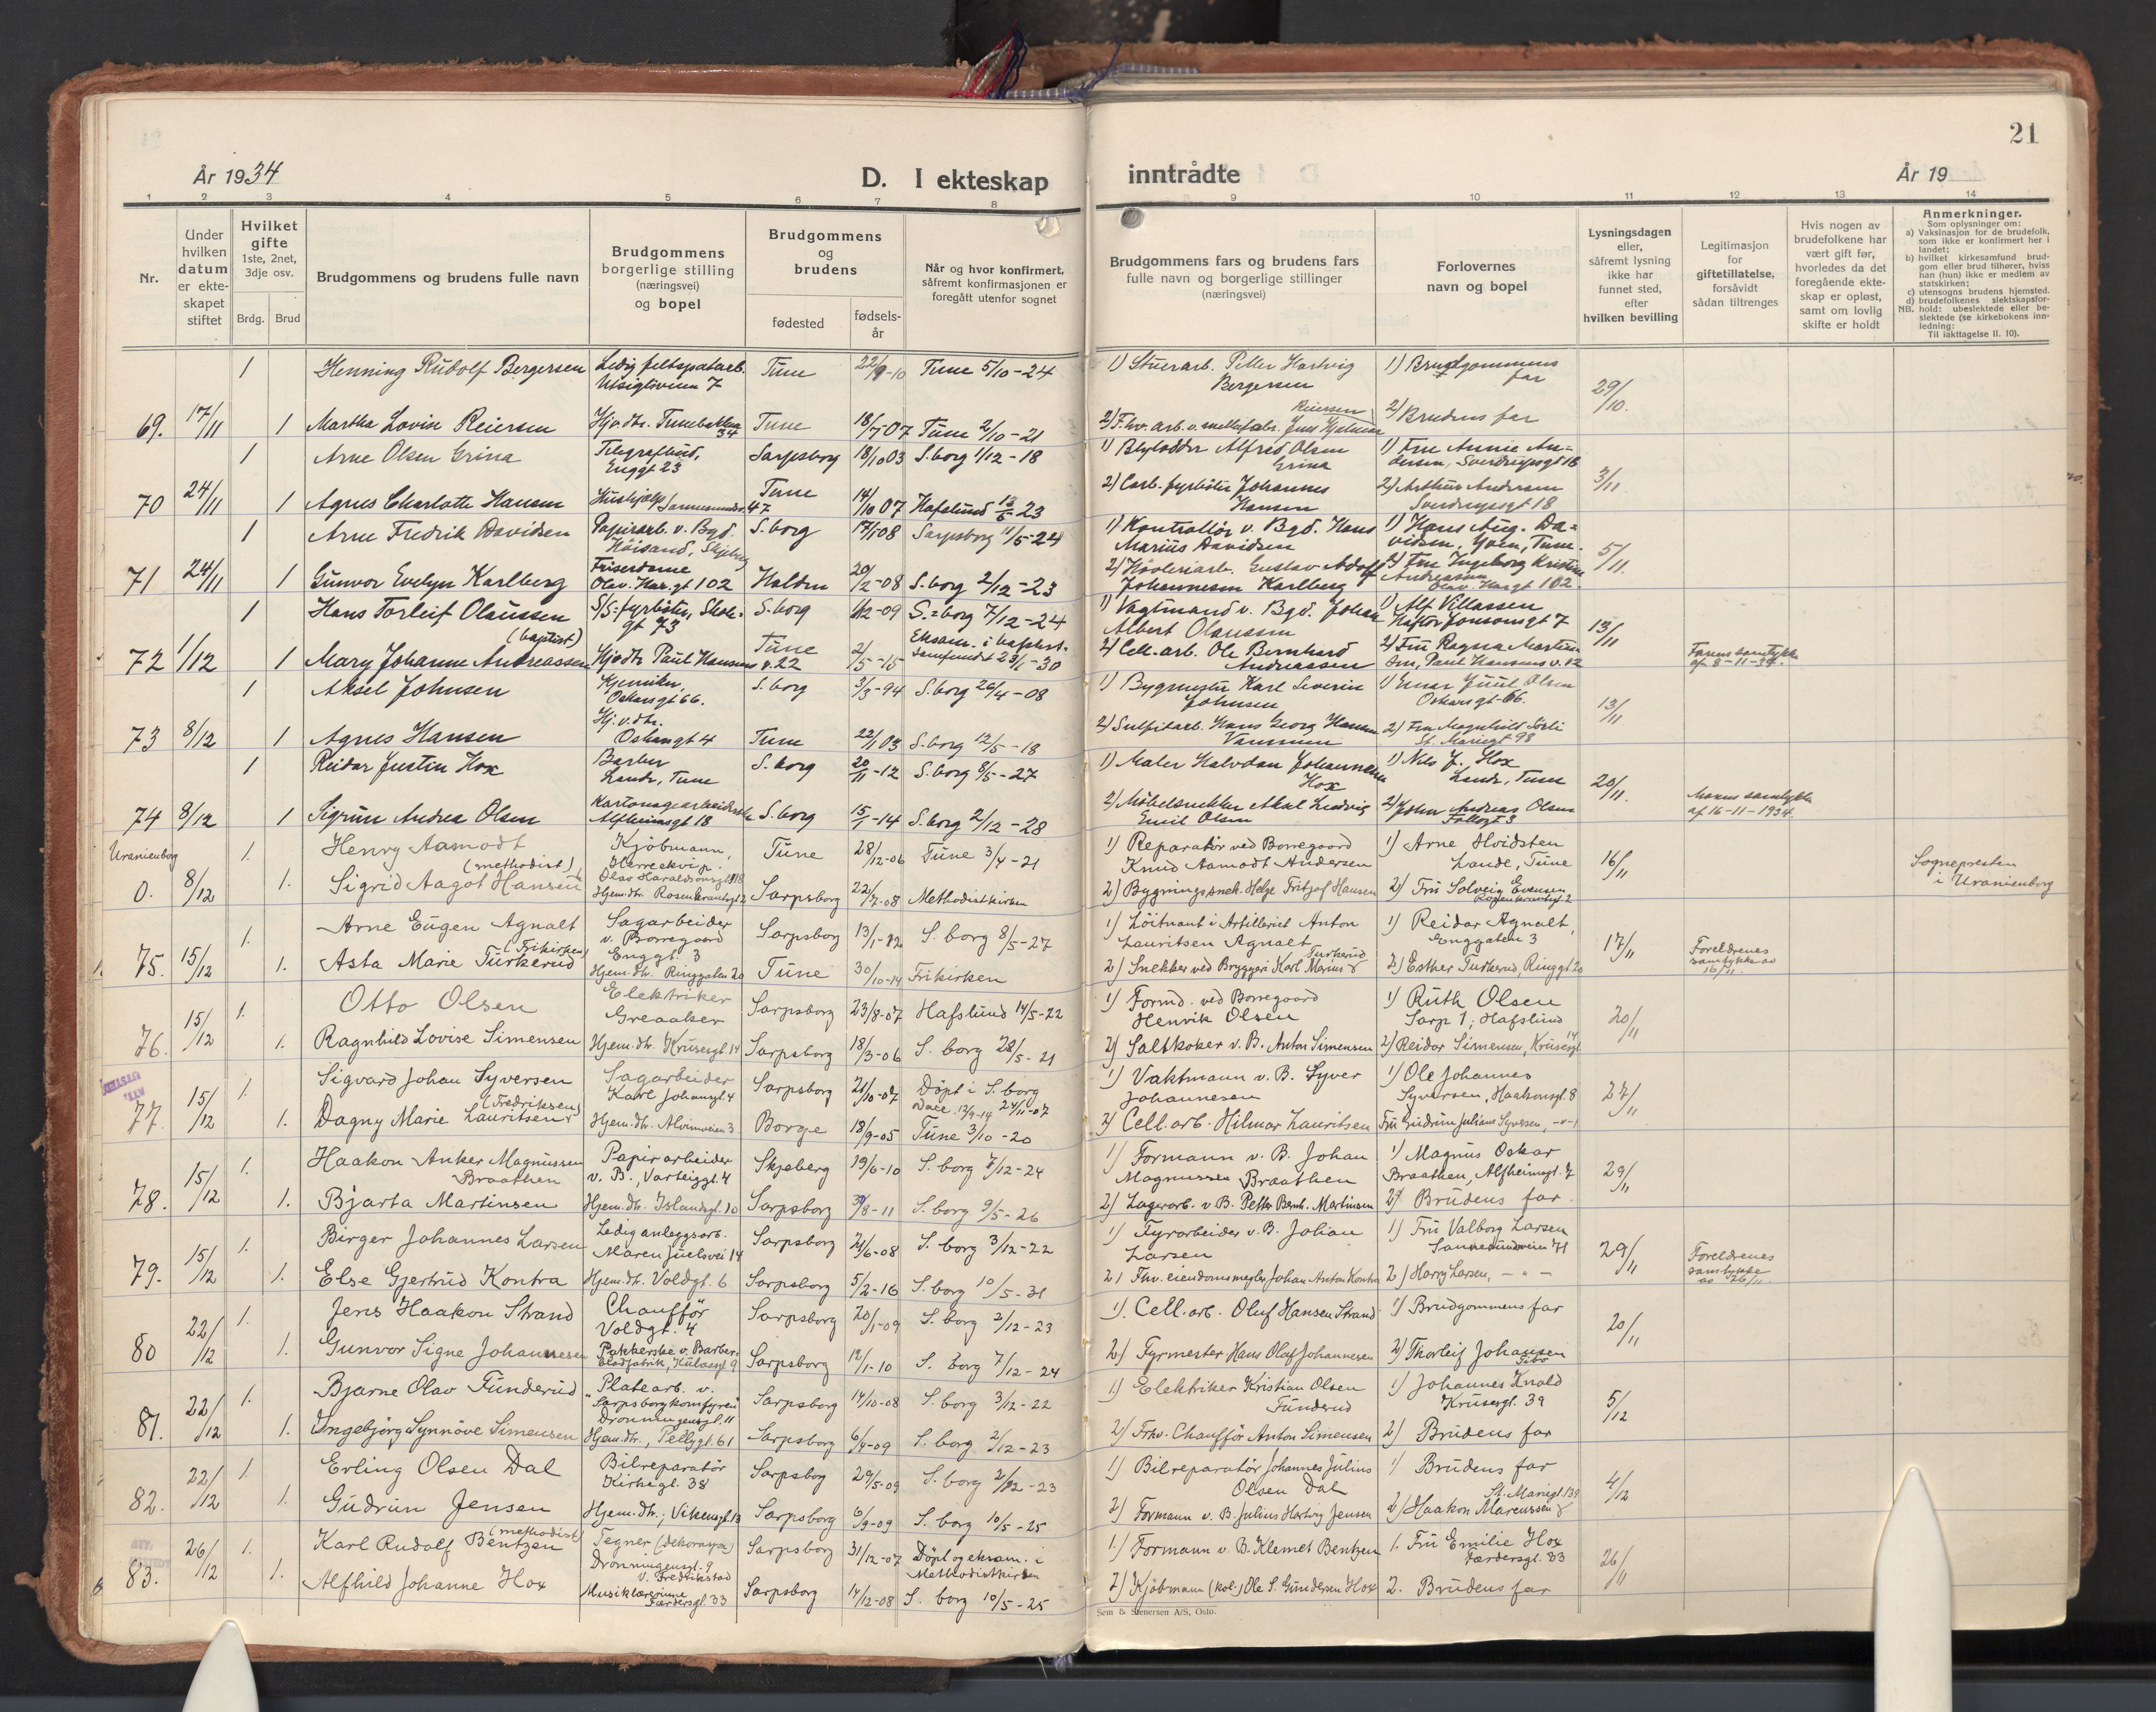 21
År 1934
D. I ekteskap inntrådte
År 19
1 2 3 4 5 6 7 8 9 10 11 12 13 14
Nr.
Under hvilken datum er ekteskapet stiftet
Hvilket gifte 1ste, 2net, 3dje osv.
Brdg. Brud
Brudgommens og brudens fulle navn
Brudgommens borgerlige stilling (næringsvei) og bopel
Brudgommens og brudens
fødested
fødselsår
Når og hvor konfirmert, såfremt konfirmasjonen er foregått utenfor sognet
Brudgommens fars og brudens fars fulle navn og borgerlige stillinger (næringsvei)
Forlovernes navn og bopel
Lysningsdagen eller, såfremt lysning ikke har funnet sted, efter hvilken bevilling
Legitimasjon for giftetillatelse, forsåvidt sådan tiltrenges
Hvis nogen av brudefolkene har vært gift før, hvorledes da det foregående ekteskap er opløst, samt om lovlig skifte er holdt
Anmerkninger.
Som oplysninger om:
a) Vaksinasjon for de brudefolk, som ikke er konfirmert her i landet;
b) hvilket kirkesamfund brudgom eller brud tilhører, hviss han (hun) ikke er medlem av statskirken;
c) utensogns brudens hjemsted.
d) brudefolkenes slektskapsforhold: ubeslektede eller beslektede (se kirkebokens innledning:
NB.
Til iakttagelse II. 10).
1 Henning Rudolf Bergersen Ledig feltspatarb. Utsigtsveien 7 Tune 22/9-10 Tune 5/10-24 1) Stuerarb. Petter Hartvig Bergersen 1) Brudgommens far 29/10.
69. 17/11 1 Martha Lovise Reiersen Hjv.dtr. Tunebakken 34 Tune 18/7-07 Tune 2/10-21 Reiersen 2) Brudens far
1 Arne Olsen Grina Telegrafbud, Enggt 23 Sarpsborg 18/10 03 S.borg 1/12-18 1) Blylodder Alfred Olsen Grina 1) Fru Annie Andersen, Sverdrupsgt 18 3/11
70 24/11 1 Agnes Charlotte Hansen Hushjelp Sannesundsv. 47 Tune 14/10 07 Hafslund -23 2) Carb. fyrbøter Johannes Hansen 2) Arthur Andersen Sverdrupsgt 18
1 Arne Fredrik Davidsen Papirarb. v. Bgd. Höisand, Skjeberg S.borg 17/1 08 Sarpsborg 11/5-24 1) Kontrollør v. Bgd. Hans Marius Davidsen 1) Hans Aug. Davidsen, Yven, Tune 5/11
71 24/11 1 Gunvor Evelyn Karlberg Friserdame Olav Har.gt 102 Halden 20/2-08 S.borg 2/12-23 2) Høvleriarb. Gustav Adolf Johannesen Karlberg 2) Fru Ingeborg Kristine Andreassen Olav Har.gt 102
1 Hans Torleif Olaussen S/S-fyrbøter, Skolegt 73 S.borg 1/12-09 S.borg 7/12-24 1) Vagtmand v. Bgd. Johan Albert Olaussen 1) Alf Villassen Haftor Jonsonsgt 7 13/11
72 1/12 1 Mary Johanne Andreassen (baptist) Hjv.dtr Paul Hansens v. 22 Tune 2/5-15 Eksam. i baptistsamfundet 23/1-30 2) Cell.-arb. Ole Bernhard Andreassen 2) Fru Ragna Martinsen, Paul Hansens v. 12 Farens samtykke af 8-11-34.
1 Aksel Johnsen Kjemiker, Oskarsgt 66. S.borg 3/3-94 S.borg 26/4-08 1) Bygmester Karl Severin Johnsen 1) Einar Juul Olsen Oskarsgt-66. 13/11
73 8/12 1 Agnes Hansen Hj.v.dtr. Oskarsgt 4 Tune 22/1 03 S.borg 12/5-18 2) Sulfitarb. Hans Georg Hansen Vammen 2) Fru Magnhild Sørli St. Mariegt 98
1 Reidar Justin Hox Barber Lande, Tune S.borg 20/11-12 S.borg 8/5-27 1) Maler Halvdan Johannesen Hox 1) Nils J. Hox Lande, Tune 20/11.
74 8/12 1 Sigrun Andrea Olsen Kartonagearbeiderske Alfheimsgt 18 S.borg 15/1-14 S.borg 2/12-28 2) Møbelsnekker Aksel Ludvig Emil Olsen 2) John Andreas Olsen Follogt 3 Morens samtykke af 16-11-1934.
Uranienborg 1. Henry Aamodt Kjöbmann, Herreekvip. Olav Haraldsonsgt. 118 Tune 28/12-06 Tune 3/4-21 1) Reparatör ved Borregaard Knud Aamodt Andersen 1) Arne Hvidsten Lande, Tune 16/11 Sognepresten i Uranienborg
0. 8/12 1. Sigrid Aagot Hansen (methodist) Hjem.dtr. Rosenkrantzgt 2 Sarpsborg 22/7-08 Methodistkirken 2) Bygningssnek. Helge Fritjof Hansen 2) Fru Solveig Evensen Rosenkrantzgt. 2
1. Arne Eugen Agnalt Sagarbeider v. Borregaard Enggt. 3 Sarpsborg 13/1-12 S. borg 8/5-27 1) Löitnant i Artilleriet Anton Lauritsen Agnalt 1) Reidar Agnalt, Enggaten 3 17/11
75. 15/12 1. Asta Marie Turkerud (Frikirken) Hjem.dtr. Ringgaten 20 Tune 30/10-14 Frikirken 2) Snekker ved Bryggeri Karl Marius Turkerud 2) Esther Turkerud, Ringgt 20 Foreldrenes samtykke av 16/11.
1. Otto Olsen Elektriker Greaaker Sarpsborg 23/8-07 Hafslund 14/5-22 1) Formd. ved Borregaard Henrik Olsen 1) Ruth Olsen Sarp 1, Hafslund 20/11
76. 15/12 1. Ragnhild Lovise Simensen Hjem.dtr. Krusesgt. 14 Sarpsborg 18/3-06 S. borg 28/5-21 2) Saltkoker v. B. Anton Simensen 2) Reidar Simensen, Krusesgt 14
1. Sigvard Johan Syversen Sagarbeider Karl Johansgt. 4 Sarpsborg 21/10-07 Döpt i S.borg 24/11-07 1) Vaktmann v. B. Syver Johannesen 1) Ole Johannes Syversen, Haakonsgt. 8 27/11
77. 15/12 1. Dagny Marie Lauritsen (Fredriksen) Hjem.dtr. Alvimveien 3 Borge 18/9-05 Tune 3/10-20 2) Cell.arb. Hilmar Lauritsen Fru Gudrun Juliane Syversen, -"-
1. Haakon Anker Magnussen Braathen Papirarbeider v. B., Varteiggt. 4 Skjeberg 19/6-10 S. borg 7/12-24 1) Formann v. B. Johan Magnussen Braathen 1) Magnus Oskar Braathen, Alfheimsgt. 7 29/11
78. 15/12 1. Bjarta Martinsen Hjem.dtr. Islandsgt. 10 Sarpsborg 30/8-11 S. borg 9/5-26 2) Lagerarb. v B. Petter Bernh. Martinsen 2) Brudens far.
1. Birger Johannes Larsen Ledig anleggsarb. Maren Juelsvei 14 Sarpsborg 21/6-08 S. borg 3/12-22 1) Fyrarbeider v.B. Johan Larsen 1) Fru Valborg Larsen Sannesundveien 41 29/11
79. 15/12 1. Else Gjertrud Kontra Hjem.dtr. Voldgt. 6 Sarpsborg 5/2-16 S. borg 10/5-31 2) Fhv. eiendomsmegler Johan Anton Kontra 2) Harry Larsen, -"- Foreldrenes samtykke av 26/11.
1. Jens Haakon Strand Chafför Voldgt. 4 Sarpsborg 20/1-09 S. borg 2/12-23 1). Cell.arb. Oluf Hansen Strand 1) Brudgommens far 20/11
80 22/12 1. Gunvor Signe Johannesen Pakkerske v. Barberbladfabrik, Kulaasgt 9 Sarpsborg 12/1-10 S. borg 7/12-24 2) Fyrmester Hans Olaf Johannesen 2) Thorleif Johansen
1. Bjarne Olav Funderud Platearb. v. "Sarpsborgkomfyren" Dronningensgt. 11 Sarpsborg 14/10-08 S. borg 3/12-22 1) Elektriker Kristian Olsen Funderud 1) Johannes Knold Krusesgt. 39 5/12
81. 22/12 1. Ingebjørg Synnöve Simensen Hjem.dtr., Pellygt. 61 Sarpsborg 6/4-09 S. borg 2/12-23 2) Fhv. Chafför Anton Simensen 2) Brudens far
1. Erling Olsen Dal Bilreparatör Kirkegt. 38 Sarpsborg 29/5-09 S. borg 2/12-23 1) Bilreparatör Johannes Julius Olsen Dal 1) Brudens far 4/12
82. 22/12 1. Gudrun Jensen Hjem.dtr., Vikensgt. 13 Sarpsborg 6/9-09 S. borg 10/5-25 2) Formann v. B. Julius Hartvig Jensen 2) Haakon Marcussen St. Mariegt. 139
1. Karl Rudolf Bentzen (methodist) Tegner (dekorasjon) Dronningensgt. 9 v. Fredrikstad Sarpsborg 31/12-07 Döpt og eksam. i Methodistkirken 1.) Formann v. B. Klemet Bentzen 1. Fru Emilie Hox Færdersgt. 33 26/11
83. 26/12 1. Alfhild Johanne Hox Musiklærerinne Færdersgt. 33 Sarpsborg 14/12-08 S. borg 10/5-25 2) Kjöbmann (kol.) Ole S. Gundersen Hox 2. Brudens far
Sem & Stenersen A/S, Oslo.